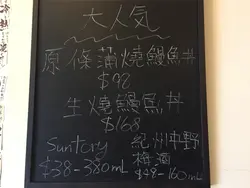 大人気
原條蒲燒鰻魚丼
$92
生燒鰻魚丼
$168
Suntory
$38-380mL
紀州中野
梅酒
$48-160mL